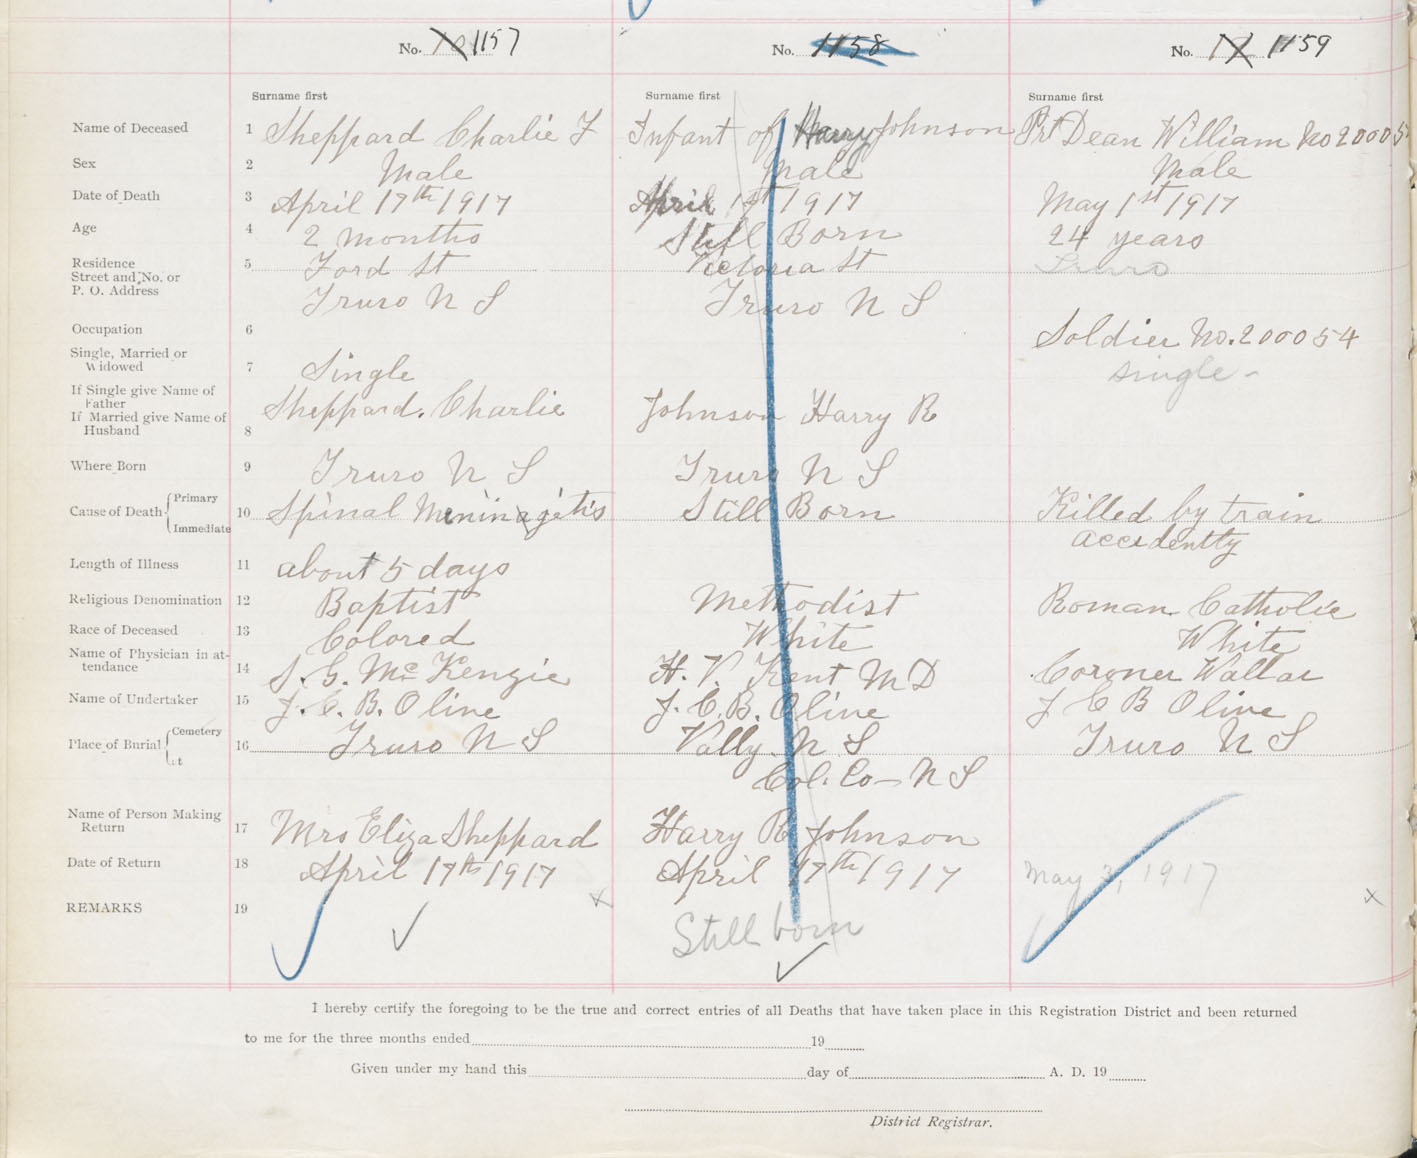 No. 1157 No. 1158 No. 1159
Surname first Surname first Surname first
Name of Deceased 1 Sheppard Charlie F Infant of Harry Johnson Prt Dean William No 200054
Sex 2 Male Male Male
Date of Death 3 April 17th 1917 April 1917 May 1st 1917
Age 4 2 months Still Born 24 years
Residence
Street and No. or 5 Ford St Victoria St Truro
P. O. Address Truro N S Truro N S
Occupation 6 Soldier No. 200054
Single, Married or
Widowed 7 Single single -
If Single give Name of
Father Sheppard. Charlie Johnson Harry R
If Married give Name of
Husband 8
Where Born 9 Truro N S Truro N S
Cause of Death Primary
Immediate 10 Spinal Meninagetis Still Born Killed by train
accidently
Length of Illness 11 about 5 days
Religious Denomination 12 Baptist Methodist Roman Catholic
Race of Deceased 13 Colored White White
Name of Physician in at-
tendance 14 S. G. Mc Kenzie H. V. Kent M D Coroner Wallar
Name of Undertaker 15 J. C. B. Oline J. C. B. Oline J C B Oline
Place of Burial Cemetery
at 16 Truro N S Vally. N S Truro N S
Col. Co- N S
Name of Person Making
Return 17 Mrs Eliza Sheppard Harry R Johnson
Date of Return 18 April 17th 1917 April 17th 1917 May 3, 1917
REMARKS 19 Still born
I hereby certify the foregoing to be the true and correct entries of all Deaths that have taken place in this Registration District and been returned
to me for the three months ended 19
Given under my hand this day of A. D. 19
District Registrar.